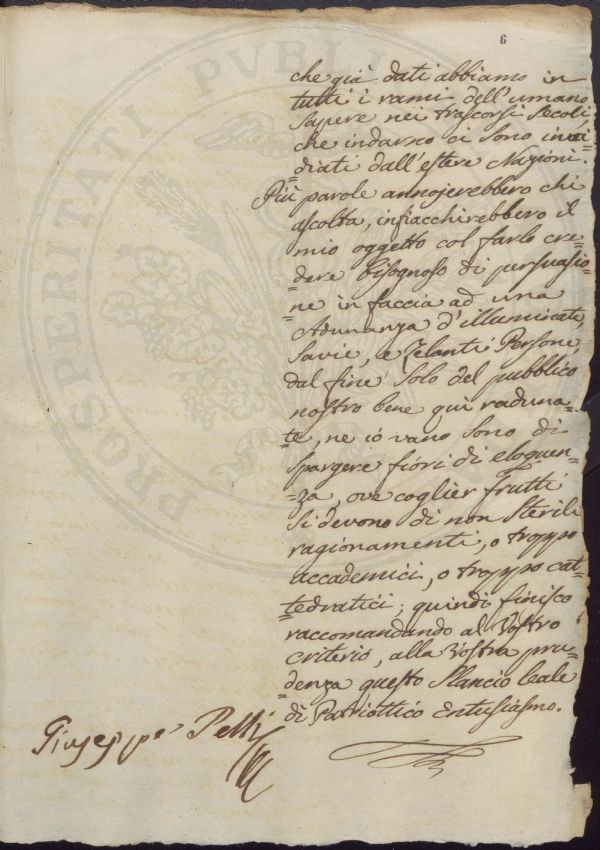 6
PROSPERITATI PVBLI
che già dati abbiamo in
tutti i rami dell'umano
sapere nei trascorsi secoli
che indarno ci sono invi
=diati dall'estere Nazioni.
Più parole annojerebbero chi
ascolta, infiacchirebbero il
mio oggetto col farlo cre=
=dere bisognoso di persuasio=
=ne in faccia ad una
Adunanza d'illuminati,
Savie, e Zelanti Persone,
dal fine solo del pubblico
nostro bene qui raduna=
=te, ne io vano sono di
spargere fiori di eloquen=
=za, ove coglier frutti
si devono di non sterili
ragionamenti, o troppo
accademici, o troppo cat=
=tedratici; quindi finisco
raccomandando al Vostro
criterio, alla Vostra pru=
=denza questo slancio leale
di Patriottico Entusiasmo.
Giuseppe Pelli